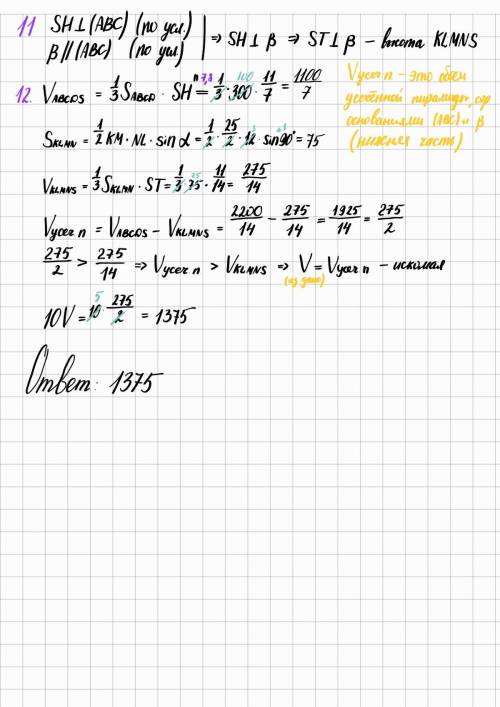 11 SH⊥(ABC) (по усл.)
β//(ABC) (по усл.) | ⇒ SH⊥β ⇒ ST⊥β - высота KLMNS
12. V_ABCDS = 1/3 S_ABCD · SH =^п 7,8 1/3 · 300 100 · 11/7 = 1100/7
V усеч п - это объем
усечённой пирамиды, с
основаниями (ABC) и β
(нижняя часть)
S_KLMN = 1/2 KM · NL · sin α = 1/2 · 25/2 · 12 · sin90° = 75
V_KLMNS = 1/3 S_KLMN · ST = 1/3 · 75 25 · 11/14 = 275/14
V усеч п = V_ABCDS - V_KLMNS = 2200/14 - 275/14 = 1925/14 = 275/2
275/2 > 275/14 ⇒ V усеч п > V_KLMNS ⇒ V = V усеч п - искомая
10V = 10 5 · 275/2 = 1375
Ответ: 1375